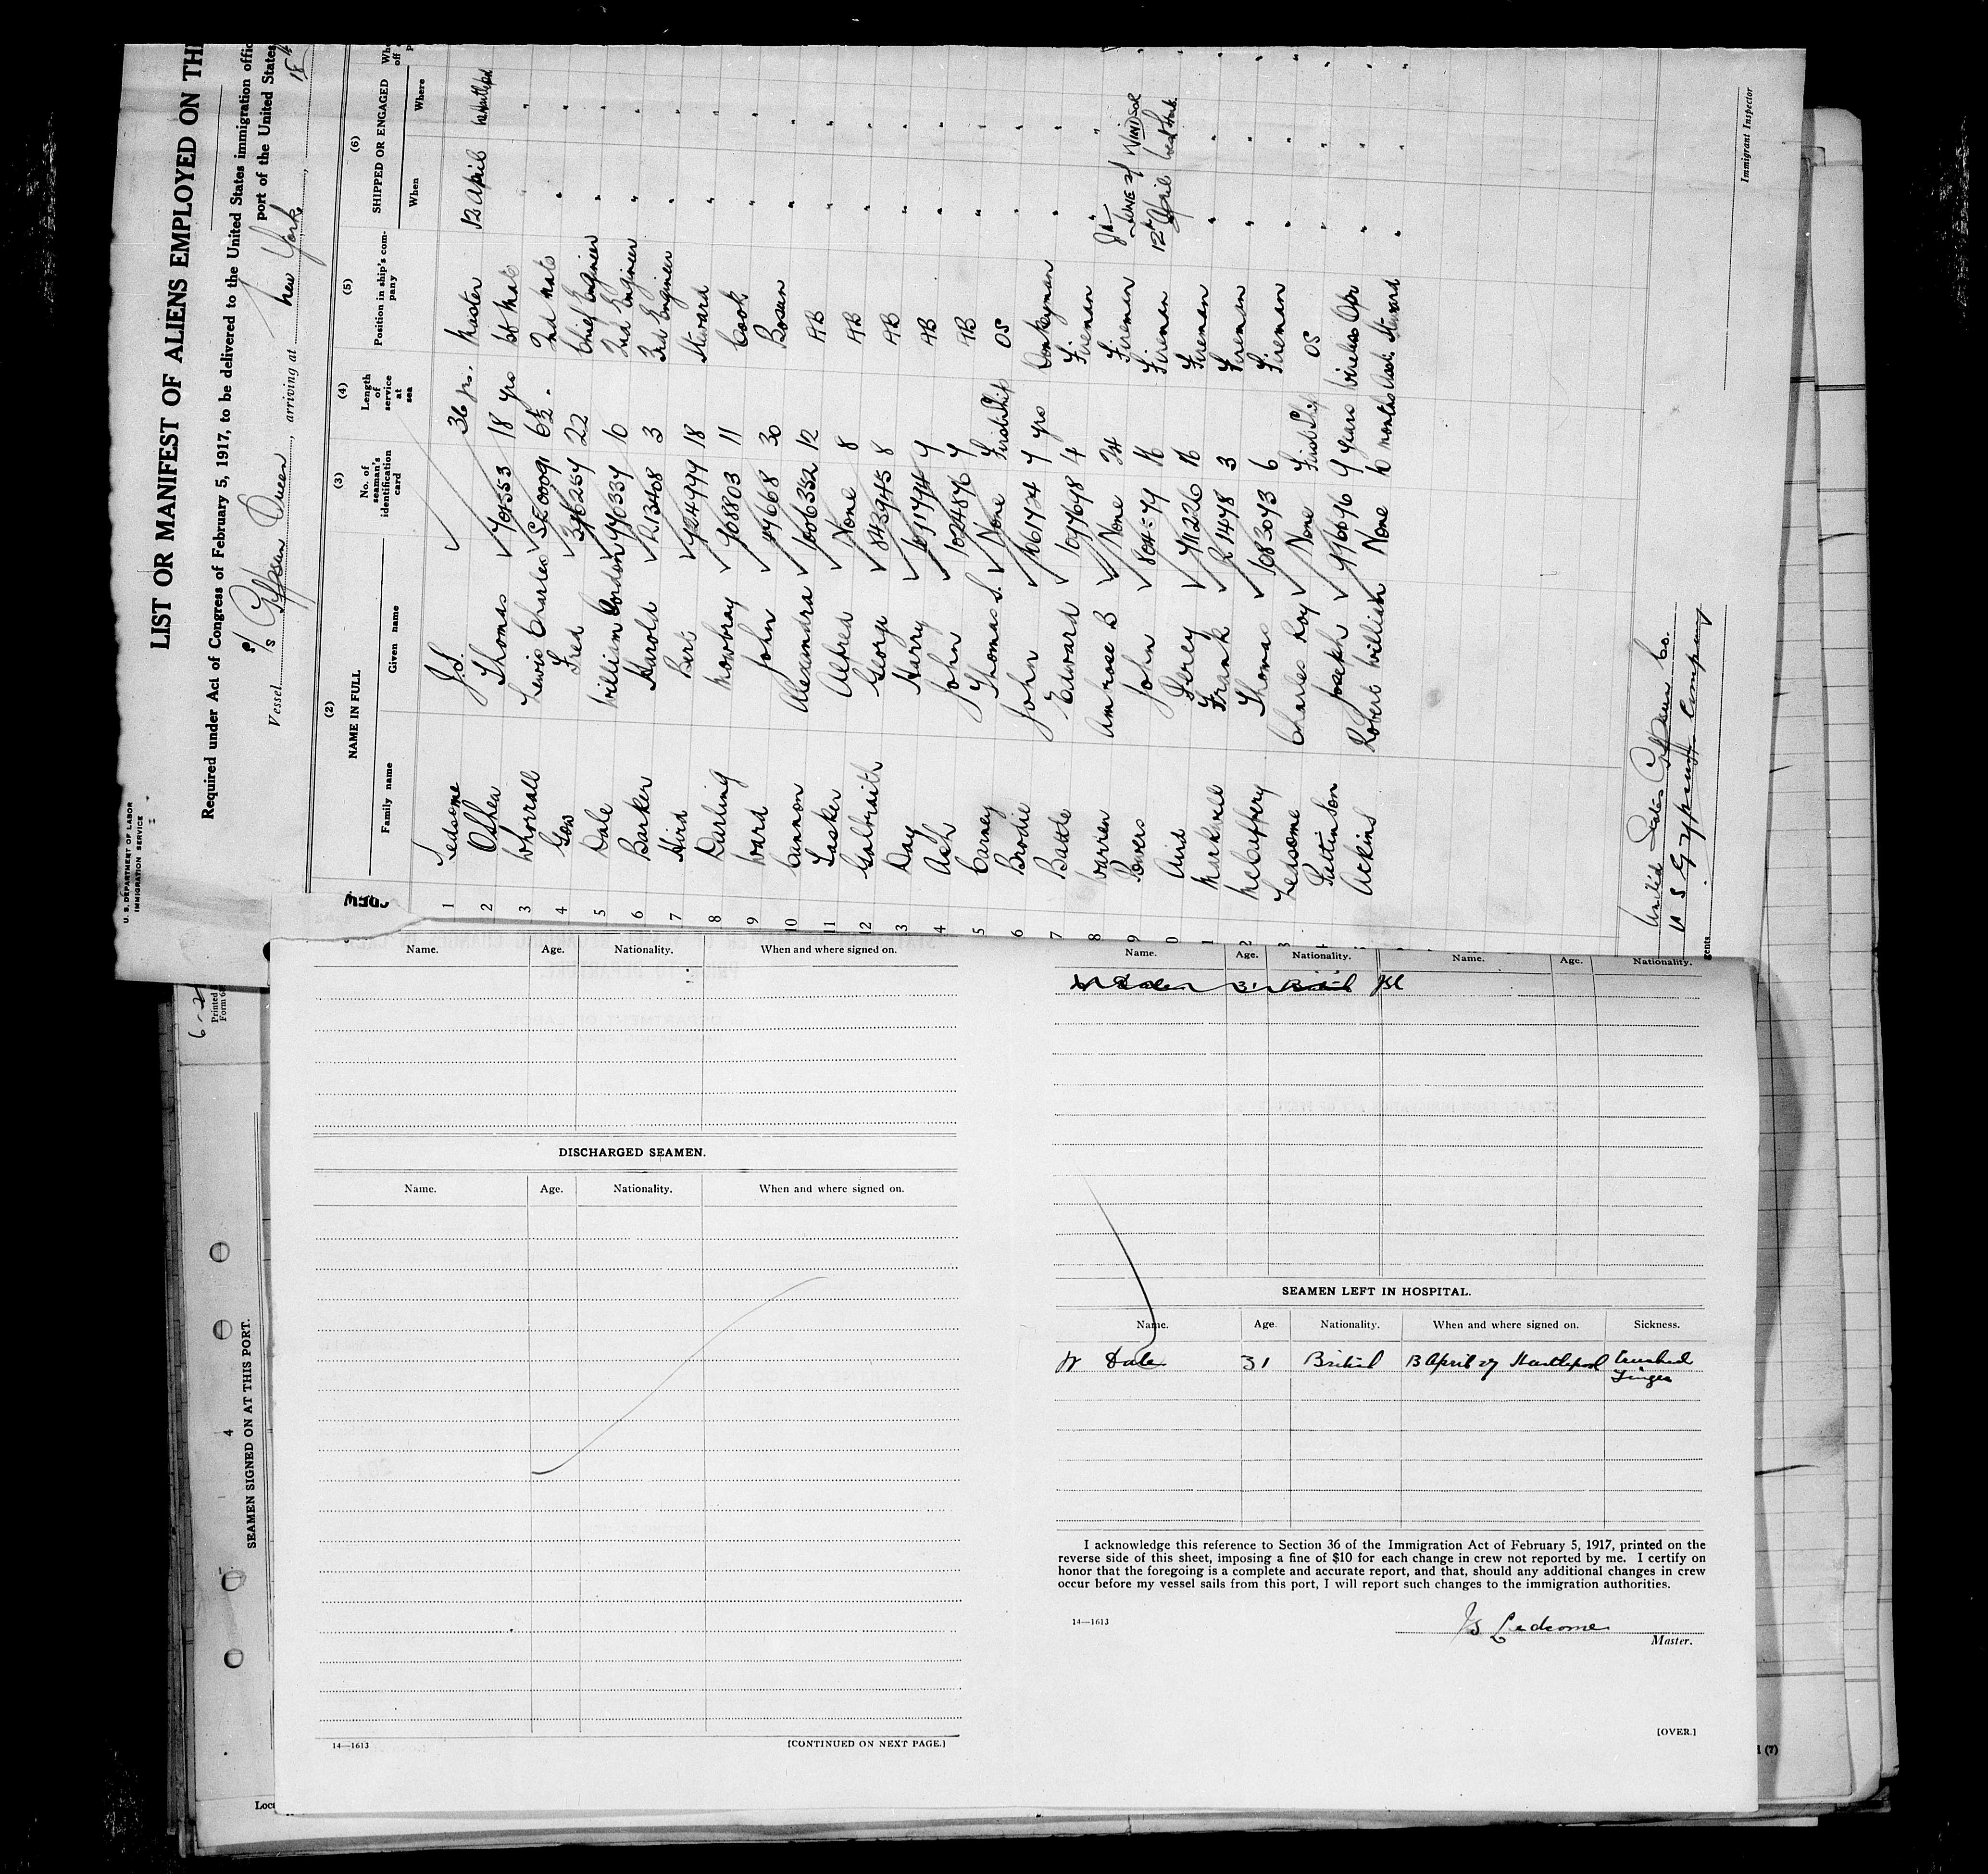 U. S. DEPARTMENT OF LABOR
IMMIGRATION SERVICE
LIST OR MANIFEST OF ALIENS EMPLOYED ON TH
Required under Act of Congress of February 5, 1917, to be delivered to the United States immigration offic
port of the United States
Vessel S/S Gypsum Queen, arriving at New York, 18th
(2) (3) (4) (5) (6)
NAME IN FULL No. of seaman's identification card Length of service at sea Position in ship's company SHIPPED OR ENGAGED
Family name Given name When Where
1 Ledsome J.S. 36 yrs. Master 12 April W Hartlepool
2 Oshea Thomas 18 yrs 1st Mate " "
3 Whorrall Lewis Charles 6½ " 2nd Mate " "
4 Gow Fred 22 Chief Engineer " "
5 Dale William Gordon 10 2nd Engineer " "
6 Barker Harold R13408 3 3rd Engineer " "
7 Hird Bert 924999 18 Steward " "
8 Darling Mowbray 708803 11 Cook " "
9 Ward John 30 Bosun " "
10 Cannon Alexandra 1006352 12 AB " "
11 Lasker Alfred None 8 AB " "
12 Galbraith George 843945 8 AB " "
3 Day Harry AB " "
4 Ash John 1024876 AB " "
5 Carney Thomas S. None First Ship OS " "
6 Brodie John 7 yrs Donkeyman " "
7 Battle Edward 1047698 4 Fireman " "
8 Warren Ambrose B None 24 Fireman June 21 WINDSOR
9 Powers John 16 Fireman 12th April West Hart.
0 Aird Percy 711226 16 Fireman " "
1 Markwell Frank R 1478 3 Fireman " "
2 McCuffery Thomas 1083073 6 Fireman " "
3 Ledsome Charles Roy None First Ship OS " "
4 Pattinson Joseph 976696 9 years Wireless Opr " "
Ackins Robert William None 10 months Asst. Steward " "
United States Gypsum Co.
U S Gypsum Company
gents
Immigrant Inspector
CREW
Name. Age. Nationality. When and where signed on.
DISCHARGED SEAMEN.
Name. Age. Nationality. When and where signed on.
14—1613 [CONTINUED ON NEXT PAGE.]
Name. Age. Nationality. Name. Age. Nationality.
W Dale 31 British JSL
SEAMEN LEFT IN HOSPITAL.
Name. Age. Nationality. When and where signed on. Sickness.
W Dale 31 British 13 April 27 Hartlepool Crushed
Finger
I acknowledge this reference to Section 36 of the Immigration Act of February 5, 1917, printed on the
reverse side of this sheet, imposing a fine of $10 for each change in crew not reported by me. I certify on
honor that the foregoing is a complete and accurate report, and that, should any additional changes in crew
occur before my vessel sails from this port, I will report such changes to the immigration authorities.
14—1613
JS Ledsome
Master.
[OVER.]
Printed
4
SEAMEN SIGNED ON AT THIS PORT.
(7)